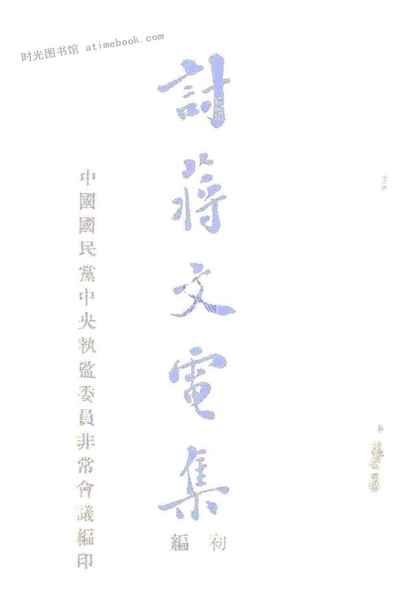 时光图书馆 atimebook.com
討蔣文電集
初編
中國國民黨中央執監委員非常會議編印